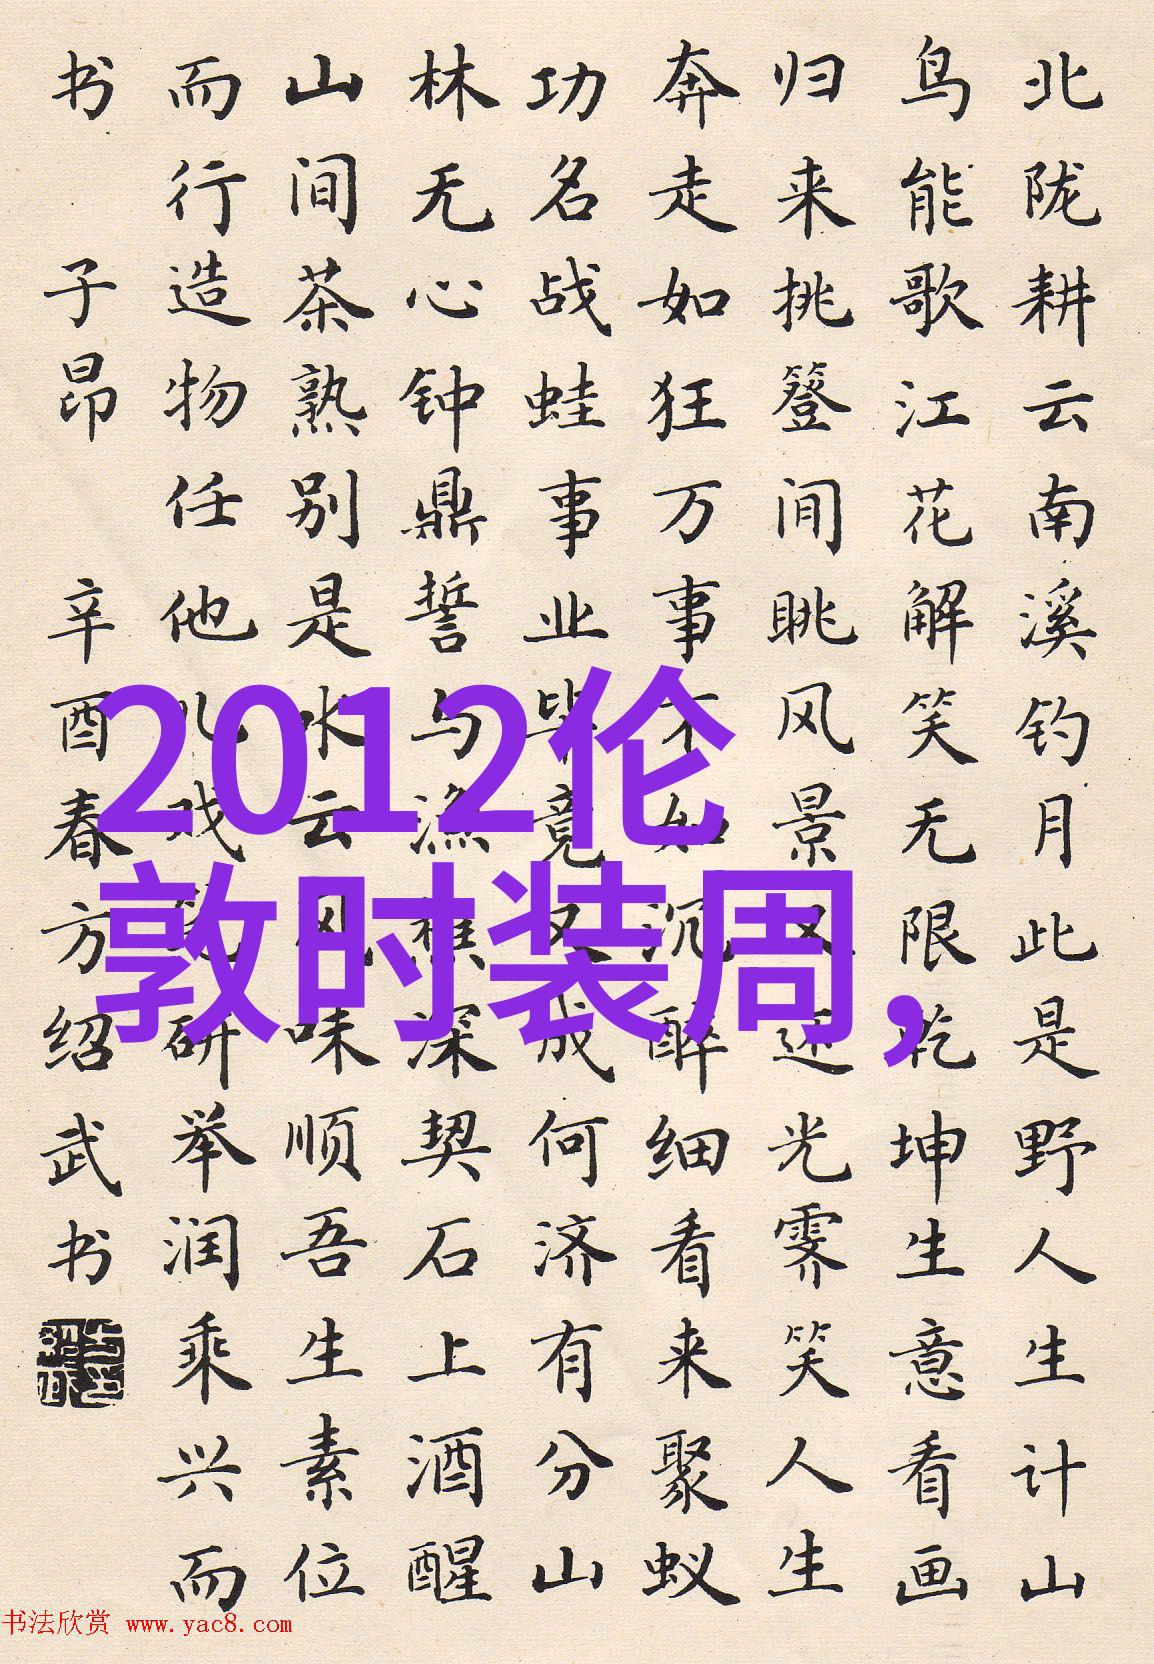 北陇耕云南溪钓月此是野人生计山
鸟能歌江花解笑无限乾坤生意看画
归来挑簦闲眺风景又还光霁笑人生
奔走如狂万事不如沉醉细看来聚蚁
功名战蛙事业毕竟又成何济有分山
林无心钟鼎誓与渔樵深契石上酒醒
山间茶熟别是水云风味顺吾生素位
而行造物任他儿戏
研举润乘兴而
书 子昂 辛酉春方绍武书
2012伦
敦时装周,
书法欣赏 www.yac8.com